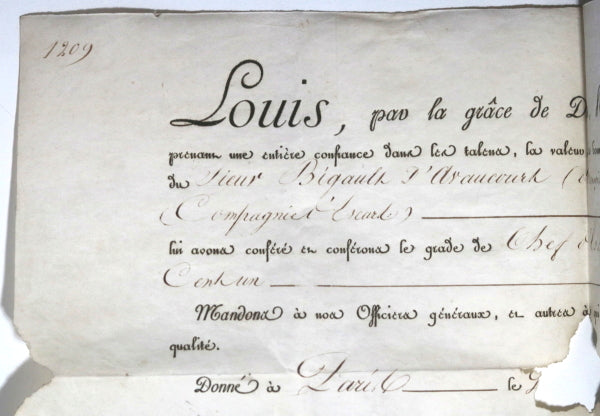 1209
Louis, par la grâce de D
prenant une entière confiance dans les talens, la valeur
du Sieur Bigault D'Avaucourt
(Compagnie d'Ecart)
lui avons conféré et conférons le grade de Chef d
Cent un
Mandons à nos Officiers généraux, et autres à
qualité.
Donné à Paris le